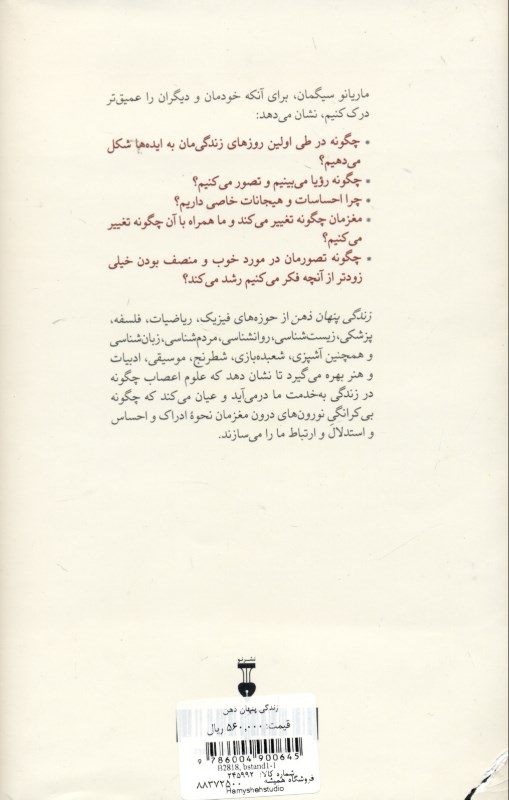 ماریانو سیگمان، برای آنکه خودمان و دیگران را عمیق‌تر
درک کنیم، نشان می‌دهد:
• چگونه در طی اولین روزهای زندگی‌مان به ایده‌ها شکل
می‌دهیم؟
• چگونه رؤیا می‌بینیم و تصور می‌کنیم؟
• چرا احساسات و هیجانات خاصی داریم؟
• مغزمان چگونه تغییر می‌کند و ما همراه با آن چگونه تغییر
می‌کنیم؟
• چگونه تصورمان در مورد خوب و منصف بودن خیلی
زودتر از آنچه فکر می‌کنیم رشد می‌کند؟
زندگی پنهان ذهن از حوزه‌های فیزیک، ریاضیات، فلسفه،
پزشکی، زیست‌شناسی، روانشناسی، مردم‌شناسی، زبان‌شناسی
و همچنین آشپزی، شعبده‌بازی، شطرنج، موسیقی، ادبیات
و هنر بهره می‌گیرد تا نشان دهد که علوم اعصاب چگونه
در زندگی به‌خدمت ما درمی‌آید و عیان می‌کند که چگونه
بی‌کرانگیِ نورون‌های درون مغزمان نحوهٔ ادراک و احساس
و استدلال و ارتباط ما را می‌سازند.
نشر نو
زندگی پنهان ذهن
قیمت: ۵۶۰,۰۰۰ ریال
9 786004 900645
B2818, bstand1-1
شماره کالا: ۲۴۵۹۹۲
فروشگاه همیشه ۸۸۳۷۲۵۰۰
Hamyshehstudio